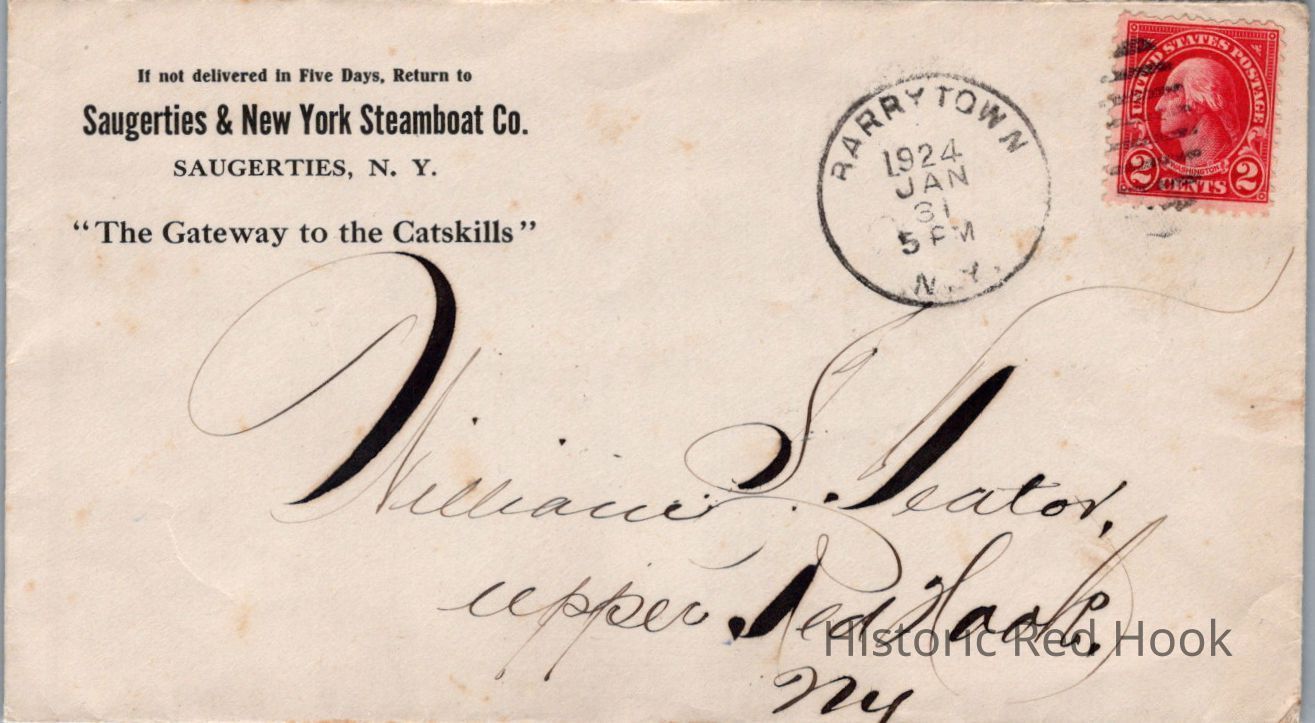 If not delivered in Five Days, Return to
Saugerties & New York Steamboat Co.
SAUGERTIES, N. Y.
"The Gateway to the Catskills"
BARRYTOWN
1924
JAN
31
5 PM
N.Y.
UNITED STATES POSTAGE
WASHINGTON
2 CENTS 2
William S. Teator,
upper Red Hook,
Ny
Historic Red Hook